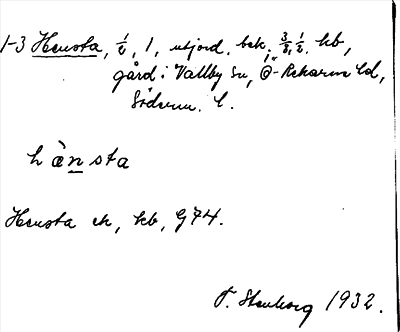 1-3 Hensta, 1/2, 1, utjord. bek. 3/8, 1/2. kb,
gård i Vallby sn, Ö-Rekarne hd,
Söderm. l.
hὰnsta
Hensta ek, kb, G74.
F. Stenborg 1932.